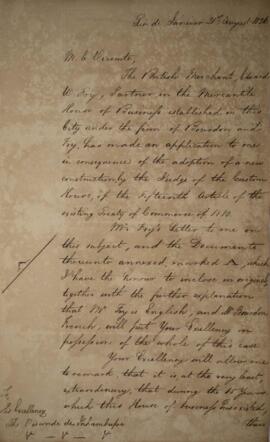 Rio de Janeiro 21st August 1826
M. le Vicomte,
The British Merchant, Edward
W. Fry, Partner in the Mercantile
House of Business established in this
City under the firm of Bourdon and
Fry, has made an application to me
in consequence of the adoption of a new
construction by the Judge of the Custom
House, of the Fifteenth Article of the
existing Treaty of Commerce of 1810.
Mr Fry's Letter to me on
this subject, and the Documents
thereunto annexed, marked A, which
I have the honour to inclose in original,
together with the further explanation
that Mr Fry is English, and M. Bourdon
French, will put Your Excellency in
possession of the whole of this case
Your Excellency will allow me
to remark that it is at the very least,
extraordinary, that during the 15 Years
which this House of Business has existed,
there
His Excellency
The Visconde de Inhambupe